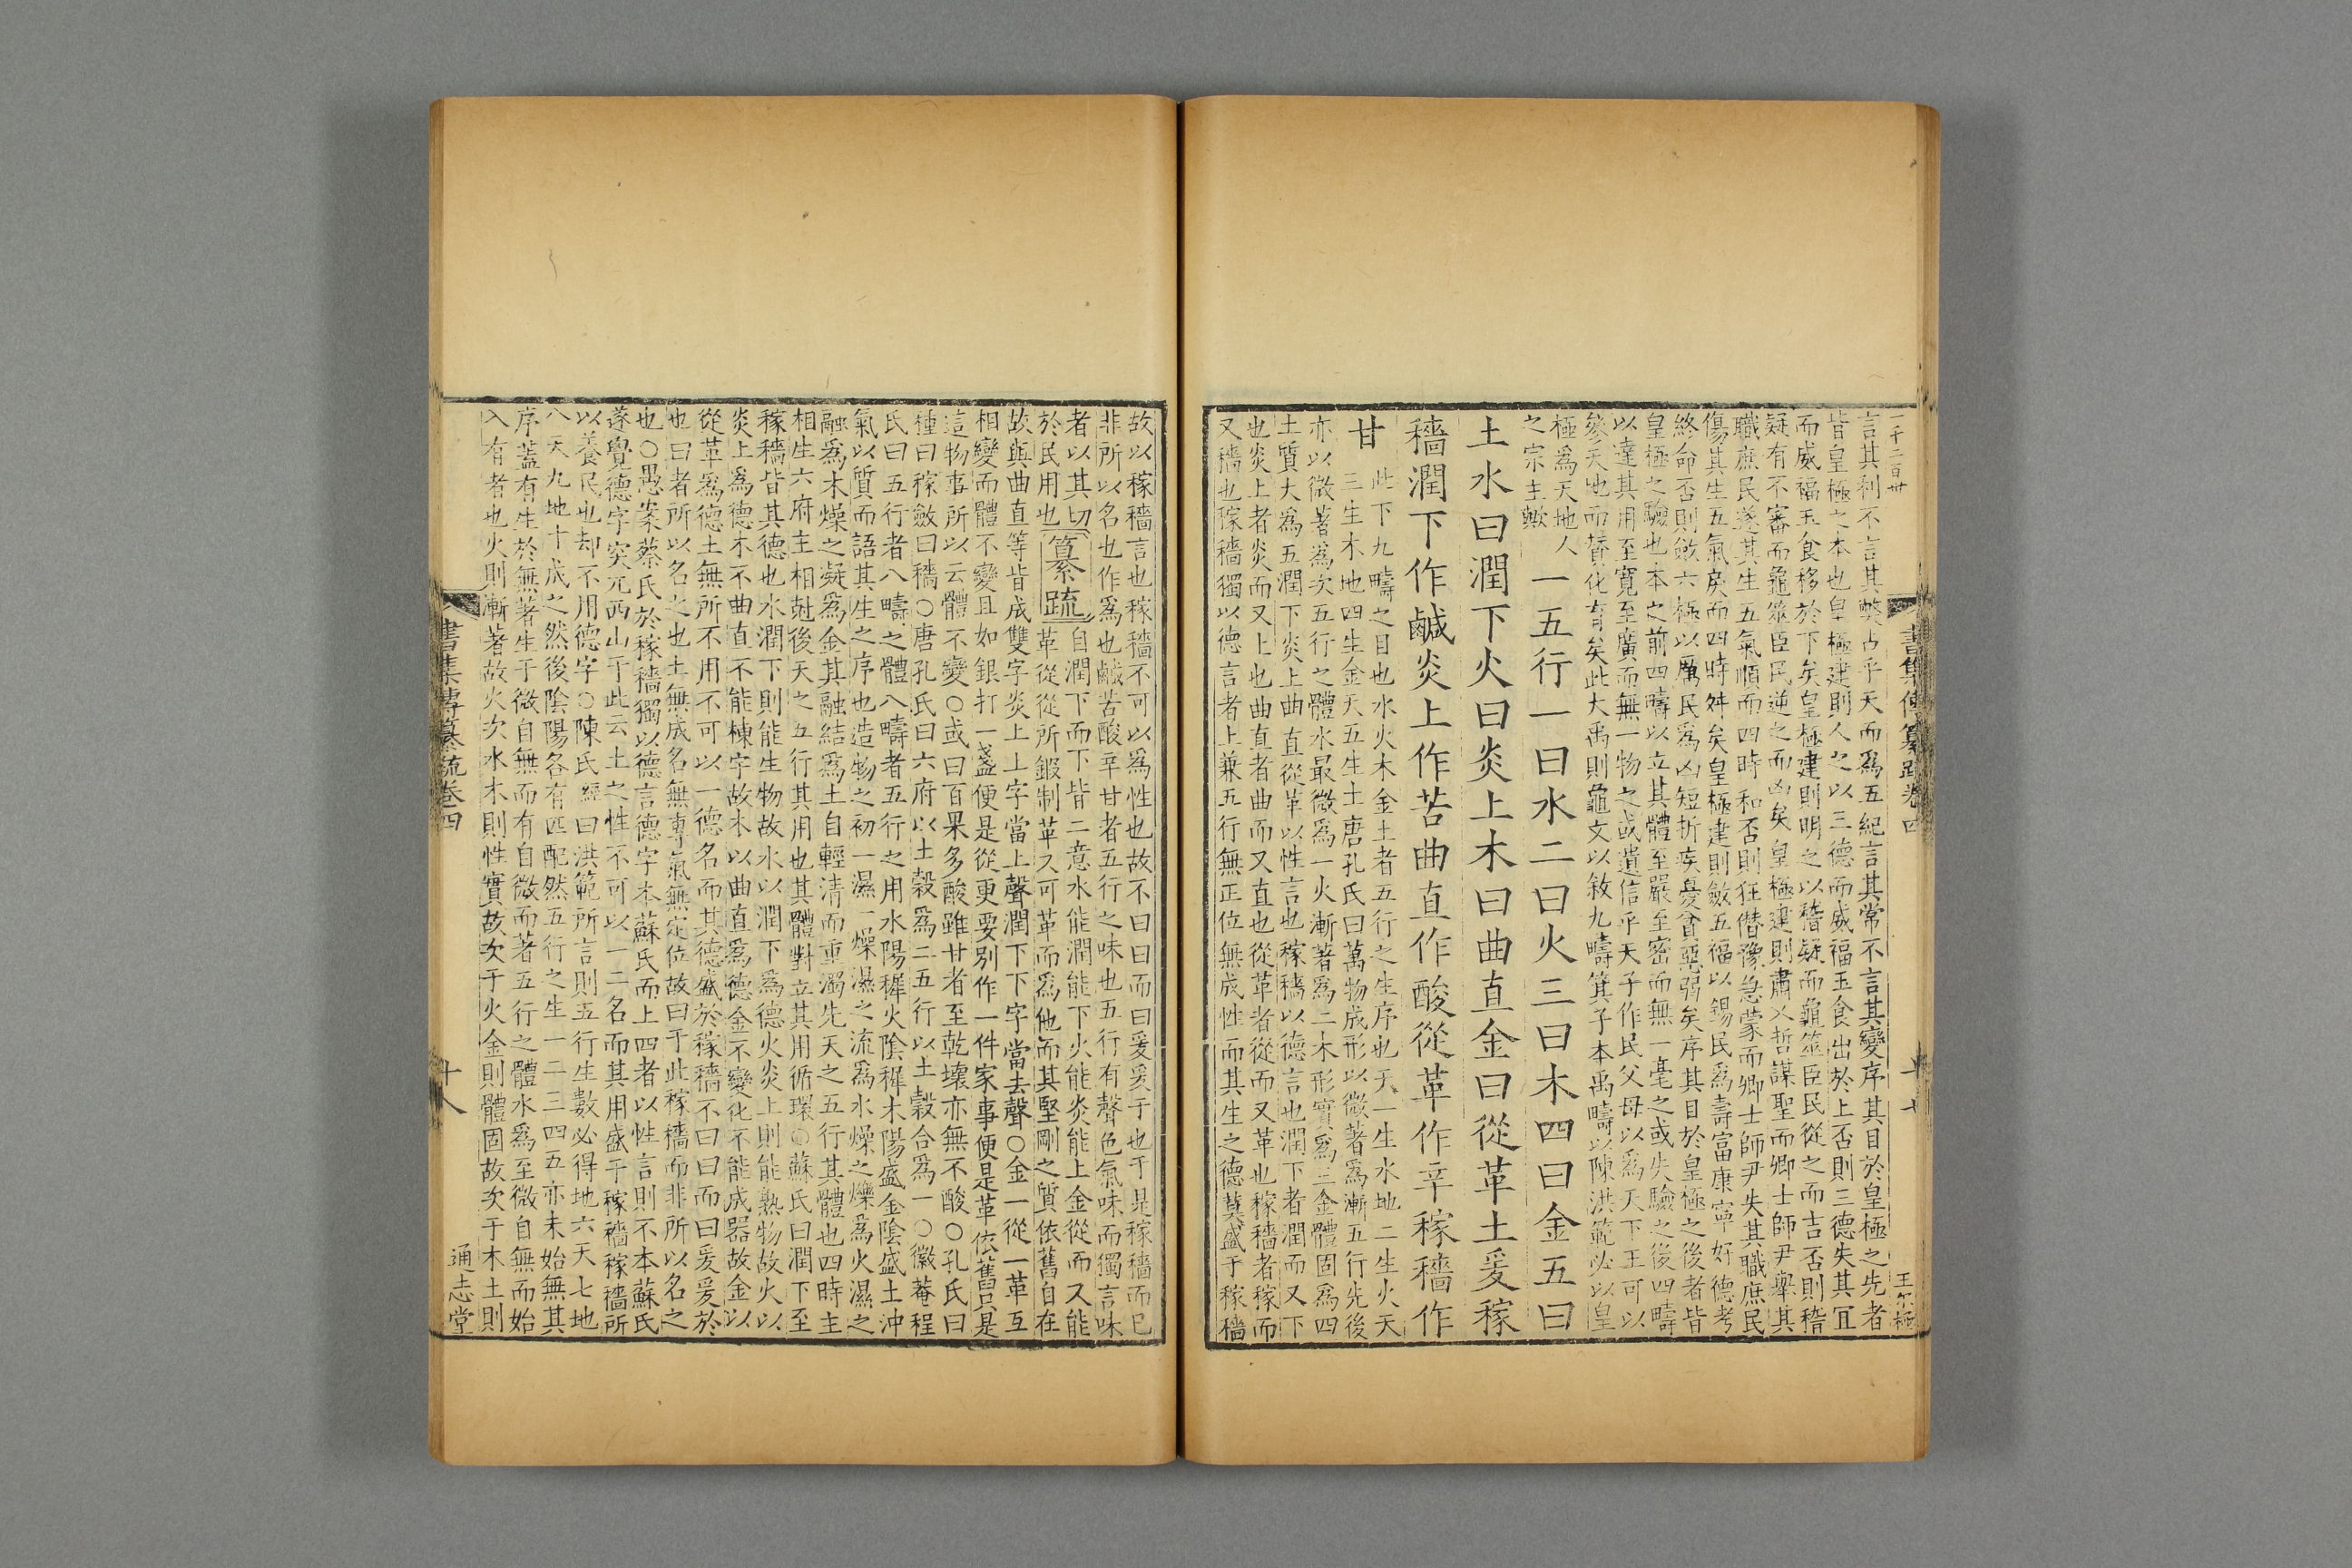 一千二百卅
書集傳纂疏卷四
十七
王尔極
言其利不言其弊占乎天而爲五紀言其常不言其變序其目於皇極之先者
皆皇極之本也皇極建則人之以三德而威福玉食出於上否則三德失其宜
而威福玉食移於下矣皇極建則明之以稽疑而龜筮臣民從之而吉否則稽
疑有不審而龜筮臣民逆之而凶矣皇極建則肅乂哲謀聖而卿士師尹舉其
職庶民遂其生五氣順而四時和否則狂僭豫急蒙而卿士師尹失其職庶民
傷其生五氣戾而四時舛矣皇極建則斂五福以錫民爲壽富康寧好德考
終命否則斂六極以厲民爲凶短折疾憂貧惡弱矣序其目於皇極之後者皆
皇極之驗也本之前四疇以立其體至嚴至密而無一毫之或失驗之後四疇
以達其用至寬至廣而無一物之或遺信乎天子作民父母以爲天下王可以
參天地而贊化育矣此大禹則龜文以敘九疇箕子本禹疇以陳洪範必以皇
極爲天地人
之宗主歟
一五行一曰水二曰火三曰木四曰金五曰
土水曰潤下火曰炎上木曰曲直金曰從革土爰稼
穡潤下作鹹炎上作苦曲直作酸從革作辛稼穡作
甘
此下九疇之目也水火木金土者五行之生序也天一生水地二生火天
三生木地四生金天五生土唐孔氏曰萬物成形以微著爲漸五行先後
亦以微著爲次五行之體水最微爲一火漸著爲二木形實爲三金體固爲四
土質大爲五潤下炎上曲直從革以性言也稼穡以德言也潤下者潤而又下
也炎上者炎而又上也曲直者曲而又直也從革者從而又革也稼穡者稼而
又穡也稼穡獨以德言者上兼五行無正位無成性而其生之德莫盛于稼穡
故以稼穡言也稼穡不可以爲性也故不曰曰而曰爰爰于也于是稼穡而已
非所以名也作爲也鹹苦酸辛甘者五行之味也五行有聲色氣味而獨言味
者以其切
於民用也
纂疏
自潤下而下皆二意水能潤能下火能炎能上金從而又能
革從從所鍜制革又可革而爲他而其堅剛之質依舊自在
故與曲直等皆成雙字炎上上字當上聲潤下下字當去聲○金一從一革互
相變而體不變且如銀打一盞便是從更要別作一件家事便是革依舊只是
這物事所以云體不變○或曰百果多酸雖甘者至乾壞亦無不酸○孔氏曰
種曰稼斂曰穡○唐孔氏曰六府以土穀爲二五行以土穀合爲一○徽菴程
氏曰五行者八疇之體八疇者五行之用水陽穉火陰穉木陽盛金陰盛土沖
氣以質而語其生之序也造物之初一濕一燥濕之流爲水燥之爍爲火濕之
融爲木燥之凝爲金其融結爲土自輕清而重濁先天之五行其體也四時主
相生六府主相尅後天之五行其用也其體對立其用循環○蘇氏曰潤下至
稼穡皆其德也水潤下則能生物故水以潤下爲德火炎上則能熟物故火以
炎上爲德木不曲直不能棟宇故木以曲直爲德金不變化不能成器故金以
從革爲德土無所不用不可以一德名而其德盛於稼穡不曰曰而曰爰爰於
也曰者所以名之也土無成名無專氣無定位故曰于此稼穡而非所以名之
也○愚案蔡氏於稼穡獨以德言德字本蘇氏而上四者以性言則不本蘇氏
遂覺德字突兀西山于此云土之性不可以一二名而其用盛于稼穡稼穡所
以養民也却不用德字○陳氏經曰洪範所言則五行生數必得地六天七地
八天九地十成之然後陰陽各有匹配然五行之生一二三四五亦未始無其
序蓋有生於無著生于微自無而有自微而著五行之體水爲至微自無而始
入有者也火則漸著故火次水木則性實故次于火金則體固故次于木土則
書集傳纂疏卷四
十八
通志堂